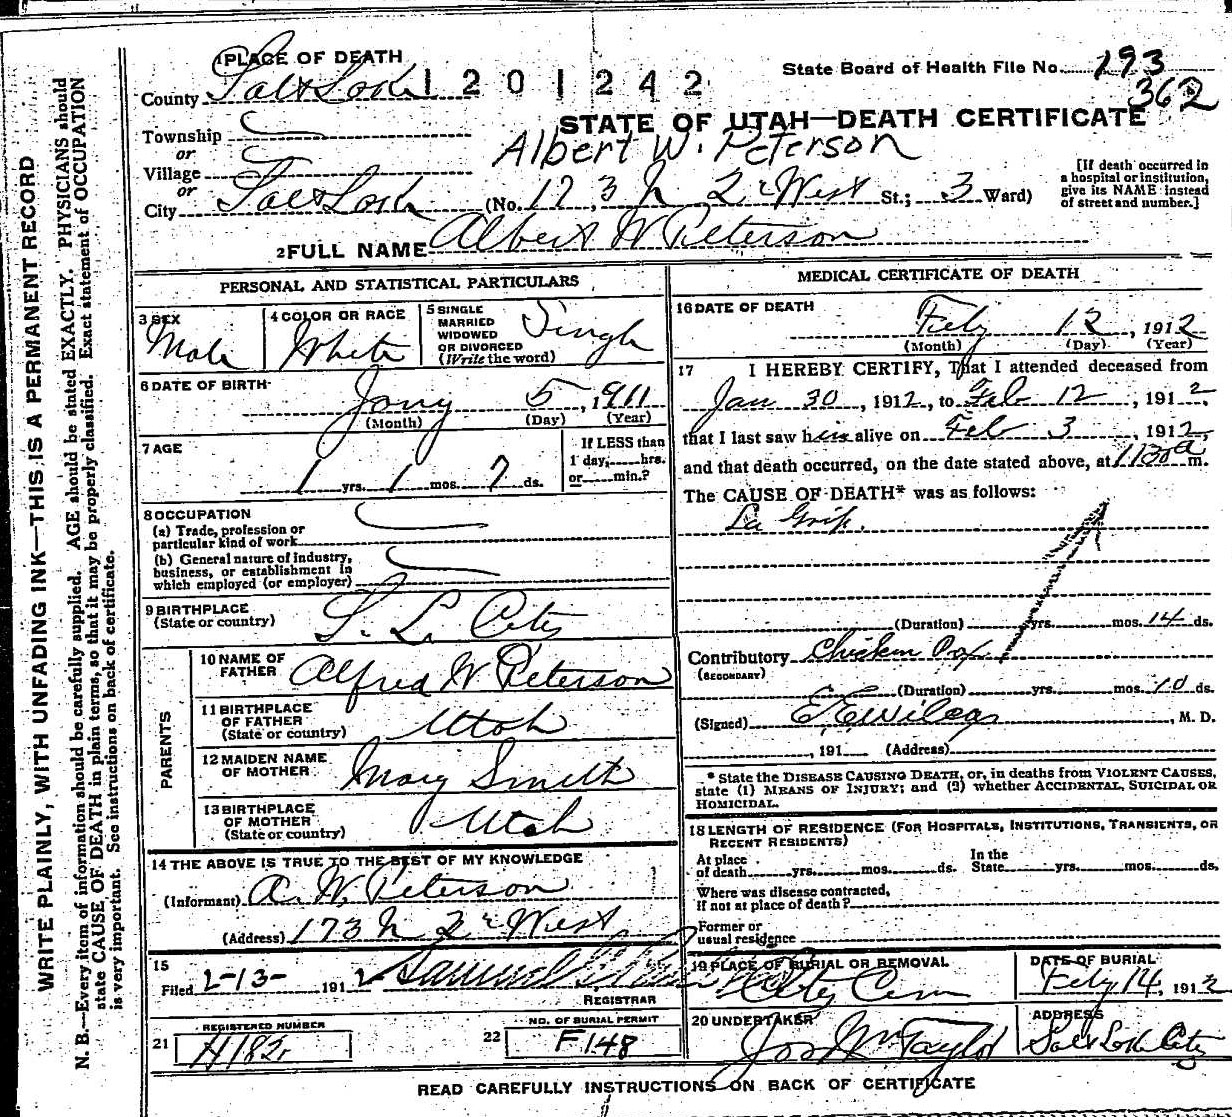 1 PLACE OF DEATH
State Board of Health File No. 193
362
County Salt Lake 1201242
STATE OF UTAH—DEATH CERTIFICATE
Township
Albert W. Peterson
or
Village
or
City Salt Lake (No. 173 N 2d West St.; 3 Ward)
[If death occurred in
a hospital or institution,
give its NAME instead
of street and number.]
2 FULL NAME Albert W Peterson
WRITE PLAINLY, WITH UNFADING INK—THIS IS A PERMANENT RECORD
N. B.—Every item of information should be carefully supplied. AGE should be stated EXACTLY. PHYSICIANS should
state CAUSE OF DEATH in plain terms, so that it may be properly classified. Exact statement of OCCUPATION
is very important. See instructions on back of certificate.
PERSONAL AND STATISTICAL PARTICULARS
3 SEX
Male
4 COLOR OR RACE
White
5 SINGLE
MARRIED
WIDOWED
OR DIVORCED
(Write the word)
Single
6 DATE OF BIRTH
Jany 5, 1911
(Month) (Day) (Year)
7 AGE
1 yrs. 1 mos. 7 ds.
If LESS than
1 day, hrs.
or min.?
8 OCCUPATION
(a) Trade, profession or
particular kind of work
(b) General nature of industry,
business, or establishment in
which employed (or employer)
9 BIRTHPLACE
(State or country)
S. L. City
PARENTS
10 NAME OF
FATHER
Alfred W Peterson
11 BIRTHPLACE
OF FATHER
(State or country)
Utah
12 MAIDEN NAME
OF MOTHER
Mary Smith
13 BIRTHPLACE
OF MOTHER
(State or country)
Utah
14 THE ABOVE IS TRUE TO THE BEST OF MY KNOWLEDGE
(Informant) A. W. Peterson
(Address) 173 N 2d West
15
Filed 2-13- 1912 Samuel
REGISTRAR
21 REGISTERED NUMBER
H182
22 NO. OF BURIAL PERMIT
F148
MEDICAL CERTIFICATE OF DEATH
16 DATE OF DEATH
Feby 12, 1912
(Month) (Day) (Year)
17 I HEREBY CERTIFY, That I attended deceased from
Jan 30, 1912, to Feb 12, 1912,
that I last saw him alive on Feb 3, 1912,
and that death occurred, on the date stated above, at 1130 a m.
The CAUSE OF DEATH* was as follows:
La Grip.
(Duration) yrs. mos. 14 ds.
Contributory Chicken Pox
(SECONDARY)
(Duration) yrs. mos. 10 ds.
(Signed) E E Wilcox, M. D.
, 191 (Address)
* State the DISEASE CAUSING DEATH, or, in deaths from VIOLENT CAUSES,
state (1) MEANS OF INJURY; and (2) whether ACCIDENTAL, SUICIDAL OR
HOMICIDAL.
18 LENGTH OF RESIDENCE (FOR HOSPITALS, INSTITUTIONS, TRANSIENTS, OR
RECENT RESIDENTS)
At place
of death yrs. mos. ds.
In the
State yrs. mos. ds.
Where was disease contracted,
if not at place of death?
Former or
usual residence
19 PLACE OF BURIAL OR REMOVAL
City Cem
DATE OF BURIAL
Feby 14, 1912
20 UNDERTAKER
Jos Wm Taylor
ADDRESS
Salt Lake City
READ CAREFULLY INSTRUCTIONS ON BACK OF CERTIFICATE